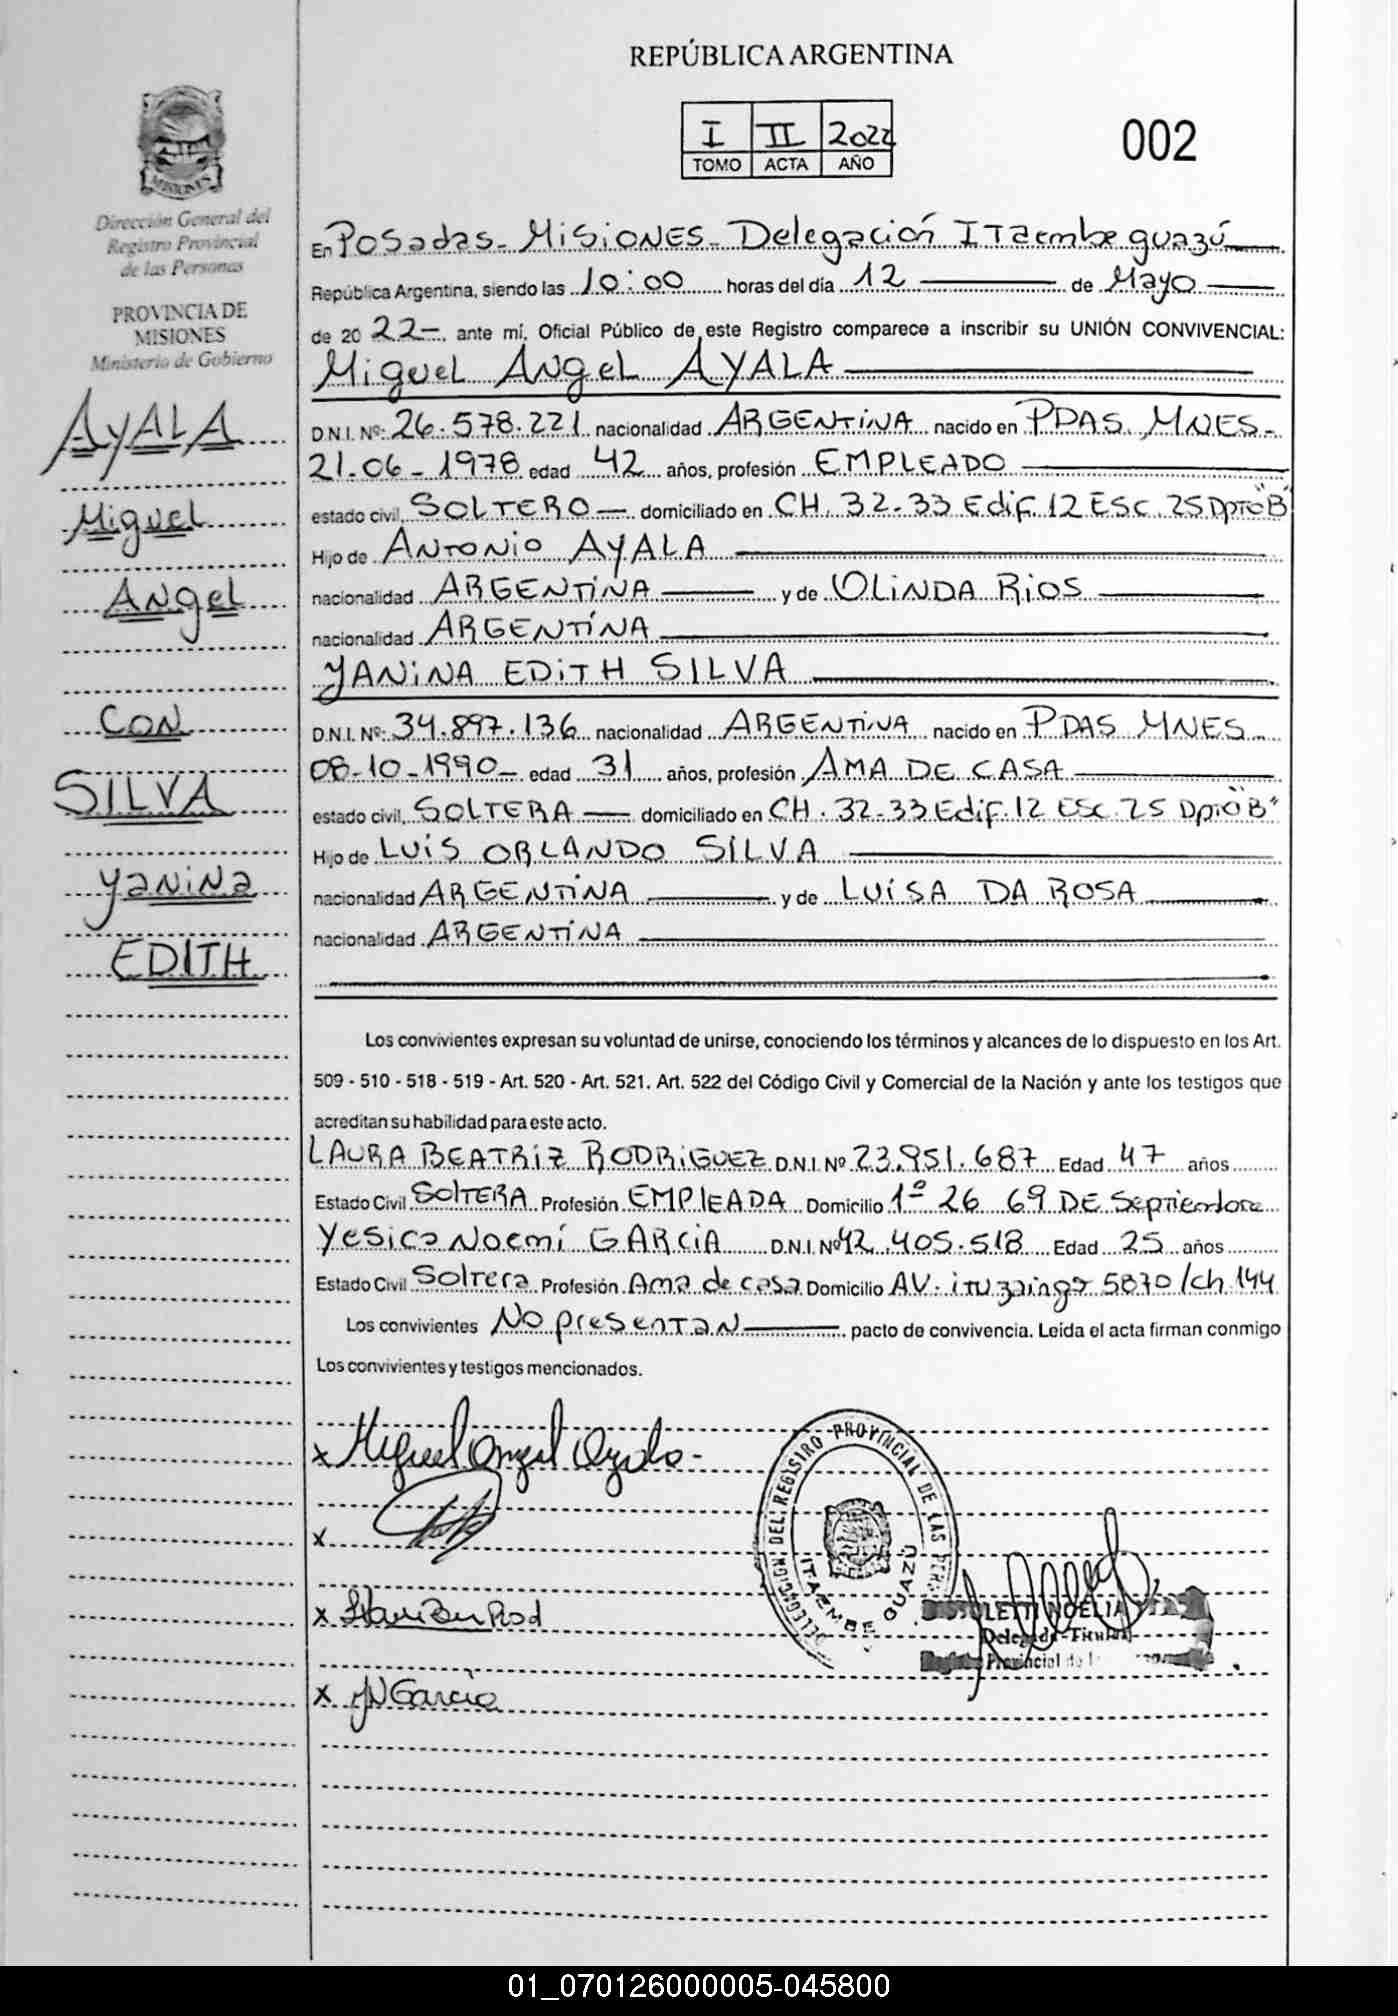 REPÚBLICA ARGENTINA
I II 2022
TOMO ACTA AÑO
002
MISIONES
Dirección General del
Registro Provincial
de las Personas
PROVINCIA DE
MISIONES
Ministerio de Gobierno
AYALA
Miguel
Angel
CON
SILVA
Yanina
EDITH
En Posadas - Misiones - Delegación ITaembe guazú
República Argentina, siendo las 10:00 horas del día 12 de Mayo
de 2022-, ante mí, Oficial Público de este Registro comparece a inscribir su UNIÓN CONVIVENCIAL:
Miguel Angel AYALA
D.N.I. Nº: 26.578.221 nacionalidad ARGENTINA nacido en PDAS. MNES-
21.06-1978 edad 42 años, profesión EMPLEADO
estado civil, SOLTERO - domiciliado en CH. 32-33 Edif. 12 ESC. 25 Dpto "B"
Hijo de ANTONIO AYALA
nacionalidad ARGENTINA y de OLINDA RIOS
nacionalidad ARGENTINA
YANINA EDITH SILVA
D.N.I. Nº: 34.897.136 nacionalidad ARGENTINA nacido en PDAS MNES-
08-10-1990- edad 31 años, profesión AMA DE CASA
estado civil, SOLTERA - domiciliado en CH. 32-33 Edif. 12 ESC. 25 Dpto "B"
Hijo de LUIS ORLANDO SILVA
nacionalidad ARGENTINA y de LUISA DA ROSA
nacionalidad ARGENTINA
Los convivientes expresan su voluntad de unirse, conociendo los términos y alcances de lo dispuesto en los Art.
509 - 510 - 518 - 519 - Art. 520 - Art. 521. Art. 522 del Código Civil y Comercial de la Nación y ante los testigos que
acreditan su habilidad para este acto.
LAURA BEATRIZ RODRIGUEZ D.N.I. Nº 23.951.687 Edad 47 años
Estado Civil SOLTERA Profesión EMPLEADA Domicilio 1º 26 69 DE Septiembre
Yesica Noemí GARCIA D.N.I. Nº 42.405.518 Edad 25 años
Estado Civil Soltera Profesión Ama de casa Domicilio AV. ituzaingo 5870/ch. 144
Los convivientes No presentan pacto de convivencia. Leída el acta firman conmigo
Los convivientes y testigos mencionados.
x Miguel Angel Ayala-
x
x
x YN Garcia
DELEGACION DEL REGISTRO PROVINCIAL DE LAS PER
ITAEMBE GUAZÚ
NOELIA
Delegada Titular
Provincial de
01_070126000005-045800